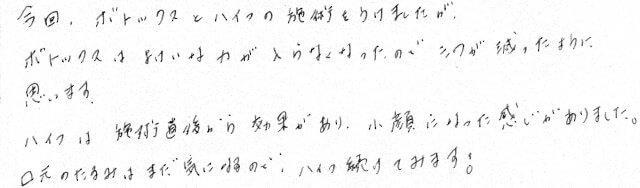 今回、ボトックスとハイフの施術をうけましたが、
ボトックスはよけいな力が入らなくなったのでシワが減ったように
思います。
ハイフは施術直後から効果があり、小顔になった感じがありました。
口元のたるみはまだ気になるので、ハイフ続けてみます!